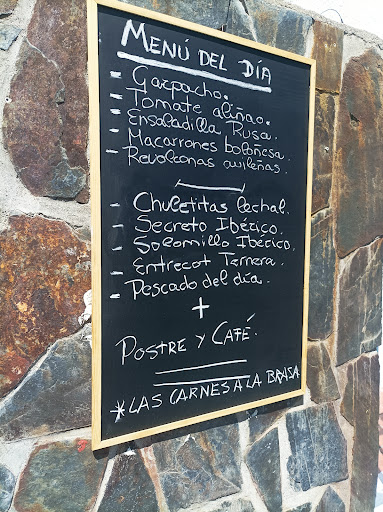 MENÚ DEL DÍA
- Gazpacho.
- Tomate aliñao.
- Ensaladilla Rusa.
- Macarrones boloñesa.
- Revolconas avileñas.
- Chuletitas lechal.
- Secreto Ibérico.
- Solomillo Ibérico.
- Entrecot Ternera.
- Pescado del día.
+
POSTRE Y CAFÉ.
*LAS CARNES A LA BRASA